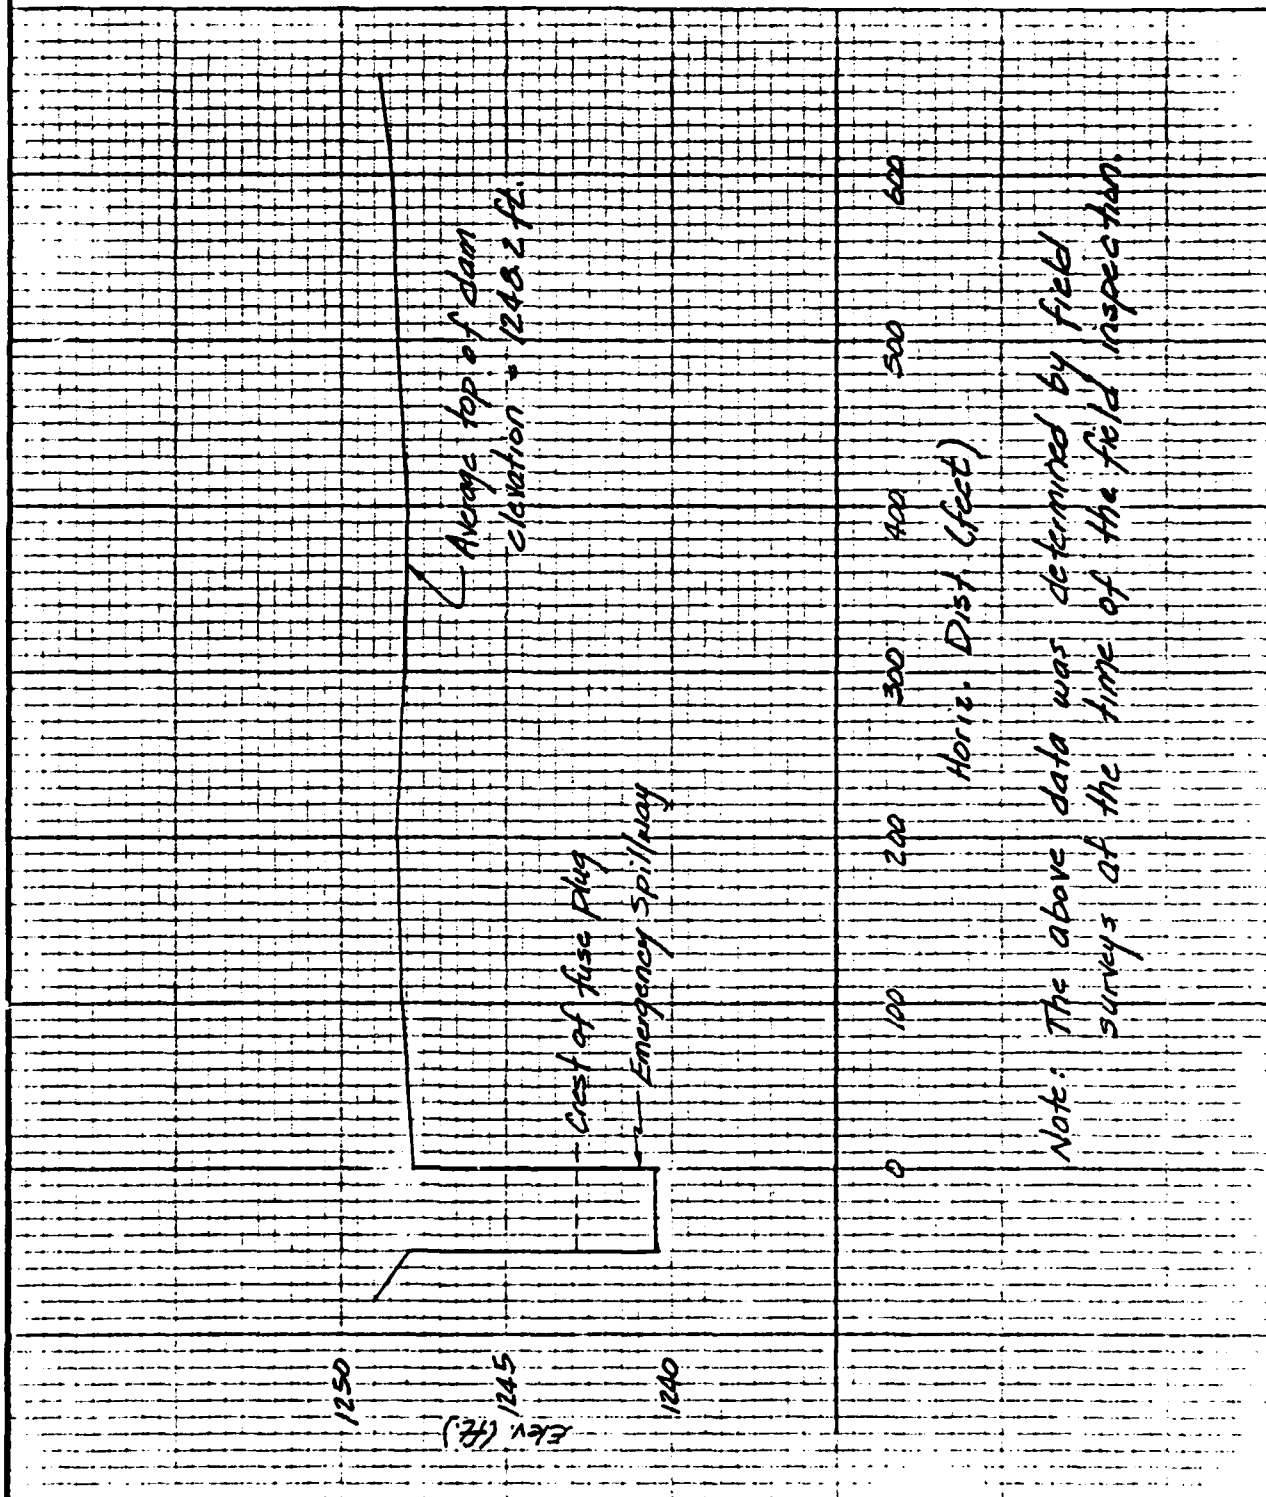 1250
Elev. (ft.)
1245
1240
Average top of dam
elevation = 1248.2 ft.
Crest of fuse plug
Emergency Spillway
0
100
200
300
400
500
600
Horiz. Dist. (feet)
Note: The above data was determined by field
surveys at the time of the field inspection.